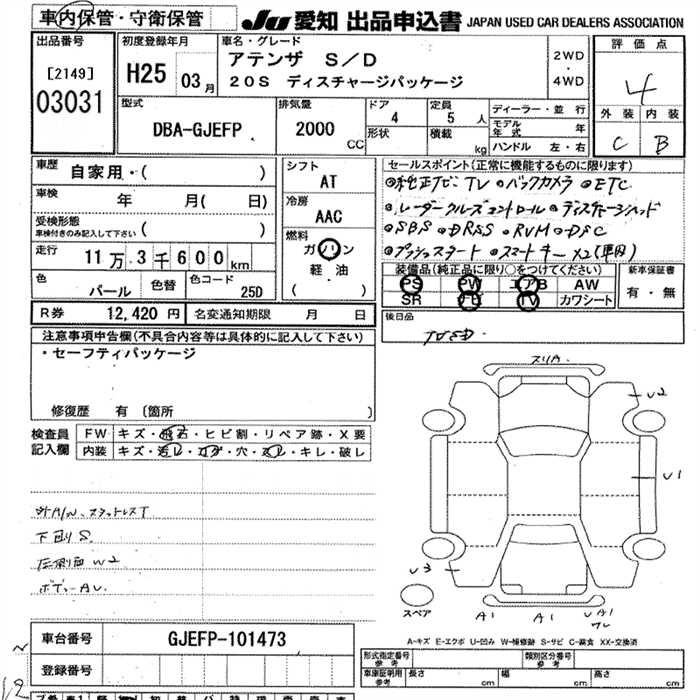 車内保管・守衛保管
JU 愛知 出品申込書 JAPAN USED CAR DEALERS ASSOCIATION
出品番号
[2149]
03031
初度登録年月
H25 03月
車名・グレード
アテンザ S/D
20S ディスチャージパッケージ
2WD
・
4WD
評価点
4
外装 内装
C B
型式
DBA-GJEFP
排気量
2000
CC
ドア
4
形状
定員
5 人
積載
kg
ディーラー・並行
モデル年式 年
ハンドル 左・右
車歴
自家用・( )
車検
年 月( 日)
受検形態
車検付きのみ記入して下さい ( )
走行
11万 3千600km
色
パール
色替
色コード
25D
シフト
AT
冷房
AAC
燃料
ガソリン
軽油
( )
セールスポイント(正常に機能するものに限ります)
◎純正ナビ TV ◎バックカメラ ◎ETC
◎レーダークルーズコントロール ◎ディスチャージヘッド
◎SBS ◎DRSS ◎RVM ◎DSC
◎プッシュスタート ◎スマートキー×2(車内)
装備品(純正品に限り○をつけてください)
PS PW エアB AW
SR ナビ TV カワシート
新車保証書
有・無
R券 12,420円
名変通知期限 月 日
後日品
注意事項申告欄(不具合内容等は具体的に記入して下さい)
・セーフティパッケージ
修復歴 有 [箇所 ]
検査員
記入欄
FW キズ・飛石・ヒビ割・リペア跡・X要
内装 キズ・汚レ・コゲ・穴・スレ・キレ・破レ
社外A/W、スタッドレスT
下回り S
左側面 W2
ボディー AU
スリA
U2
U1
U3
スペア
A1 A1 UA1
A-キズ E-エクボ U-凹み W-補修跡 S-サビ C-腐食 XX-交換済
車台番号 GJEFP-101473
登録番号
形式指定番号
類別区分番号
車庫証明用
長さ cm 幅 cm 高さ cm